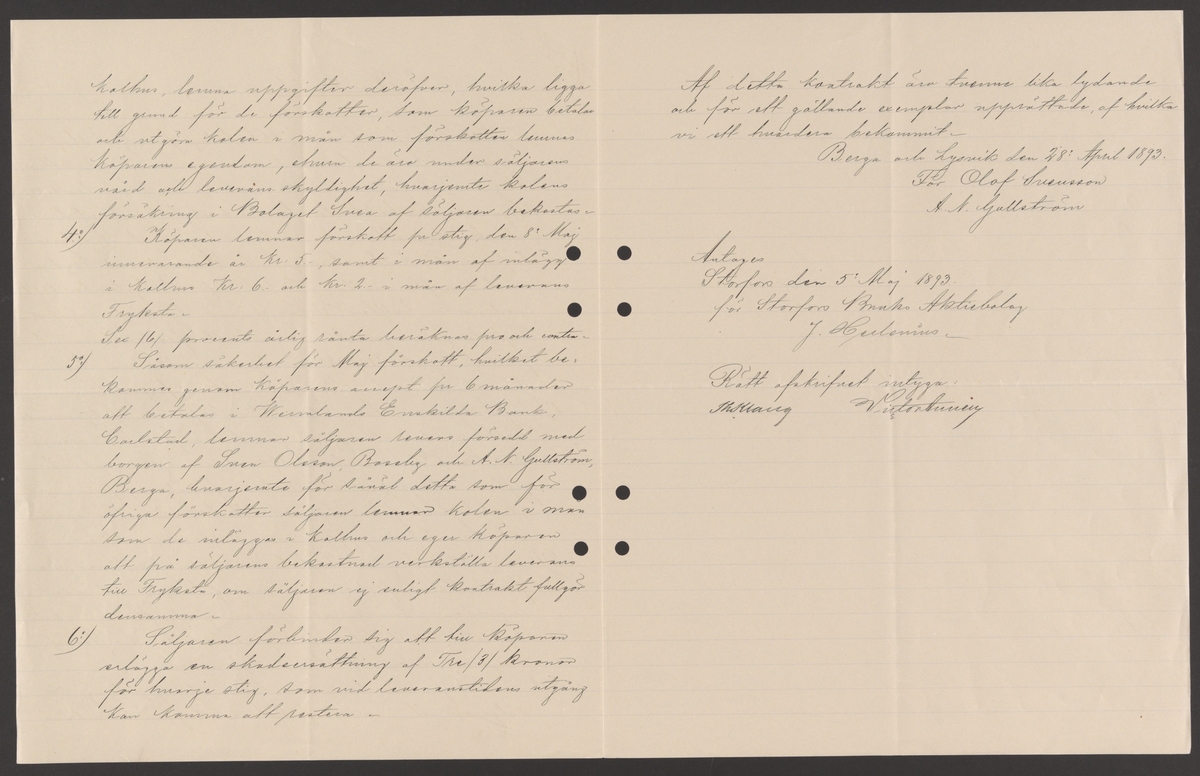 Kolhus, lemna uppgifter deröfver, hvilka ligga
till grund för de förskotter, som köparen betalar
och utgöra kolen i mån som förskotten lemnas
köparen egendom, ehuru de äro under säljarens
vård och leveransskyldighet, hvarjemte kolens
försäkring i Bolaget Svea af säljaren bekostas.-
4o) Köparen lemnar förskott pr stig den 8: Maj
innevarande år Kr. 5.-, samt i mån af inlägg
i kolhus Kr. 6.- och Kr. 2.- i mån af leverans
Fryksta.-
Sex (6) procents årlig ränta beräknas pro och contra.-
5o) Såsom säkerhet för Maj förskott, hvilket be-
kommes genom Köparens accept pr 6 månader
att betalas i Wermlands Enskilda Bank,
Carlstad, lemnar säljaren revers försedd med
borgen af Sven Olsson, Bossby och A. N. Gullström,
Berga, hvarjemte för såväl detta som för
öfriga förskotter säljaren lemnar kolen i mån
som de inläggas i Kolhus och eger Köparen
att på säljarens bekostnad verkställa leverans
till Fryksta, om säljaren ej enligt kontrakt fullgör
densamma.-
6o) Säljaren förbinder sig att till Köparen
erlägga en skadeersättning af Tre (3) kronor
för hvarje stig, som vid leveranstidens utgång
kan komma att restera.-
Af detta kontrakt äro tvenne lika lydande
och för ett gällande exemplar upprättade, af hvilka
vi ett hvardera bekommit.-
Berga och Lysvik den 28: April 1893.
För Olof Svensson
A. N. Gullström
Antages
Storfors den 5: Maj 1893.
för Storfors Bruks Aktiebolag
J. Helenius.-
Rätt afskrifvet intyga: